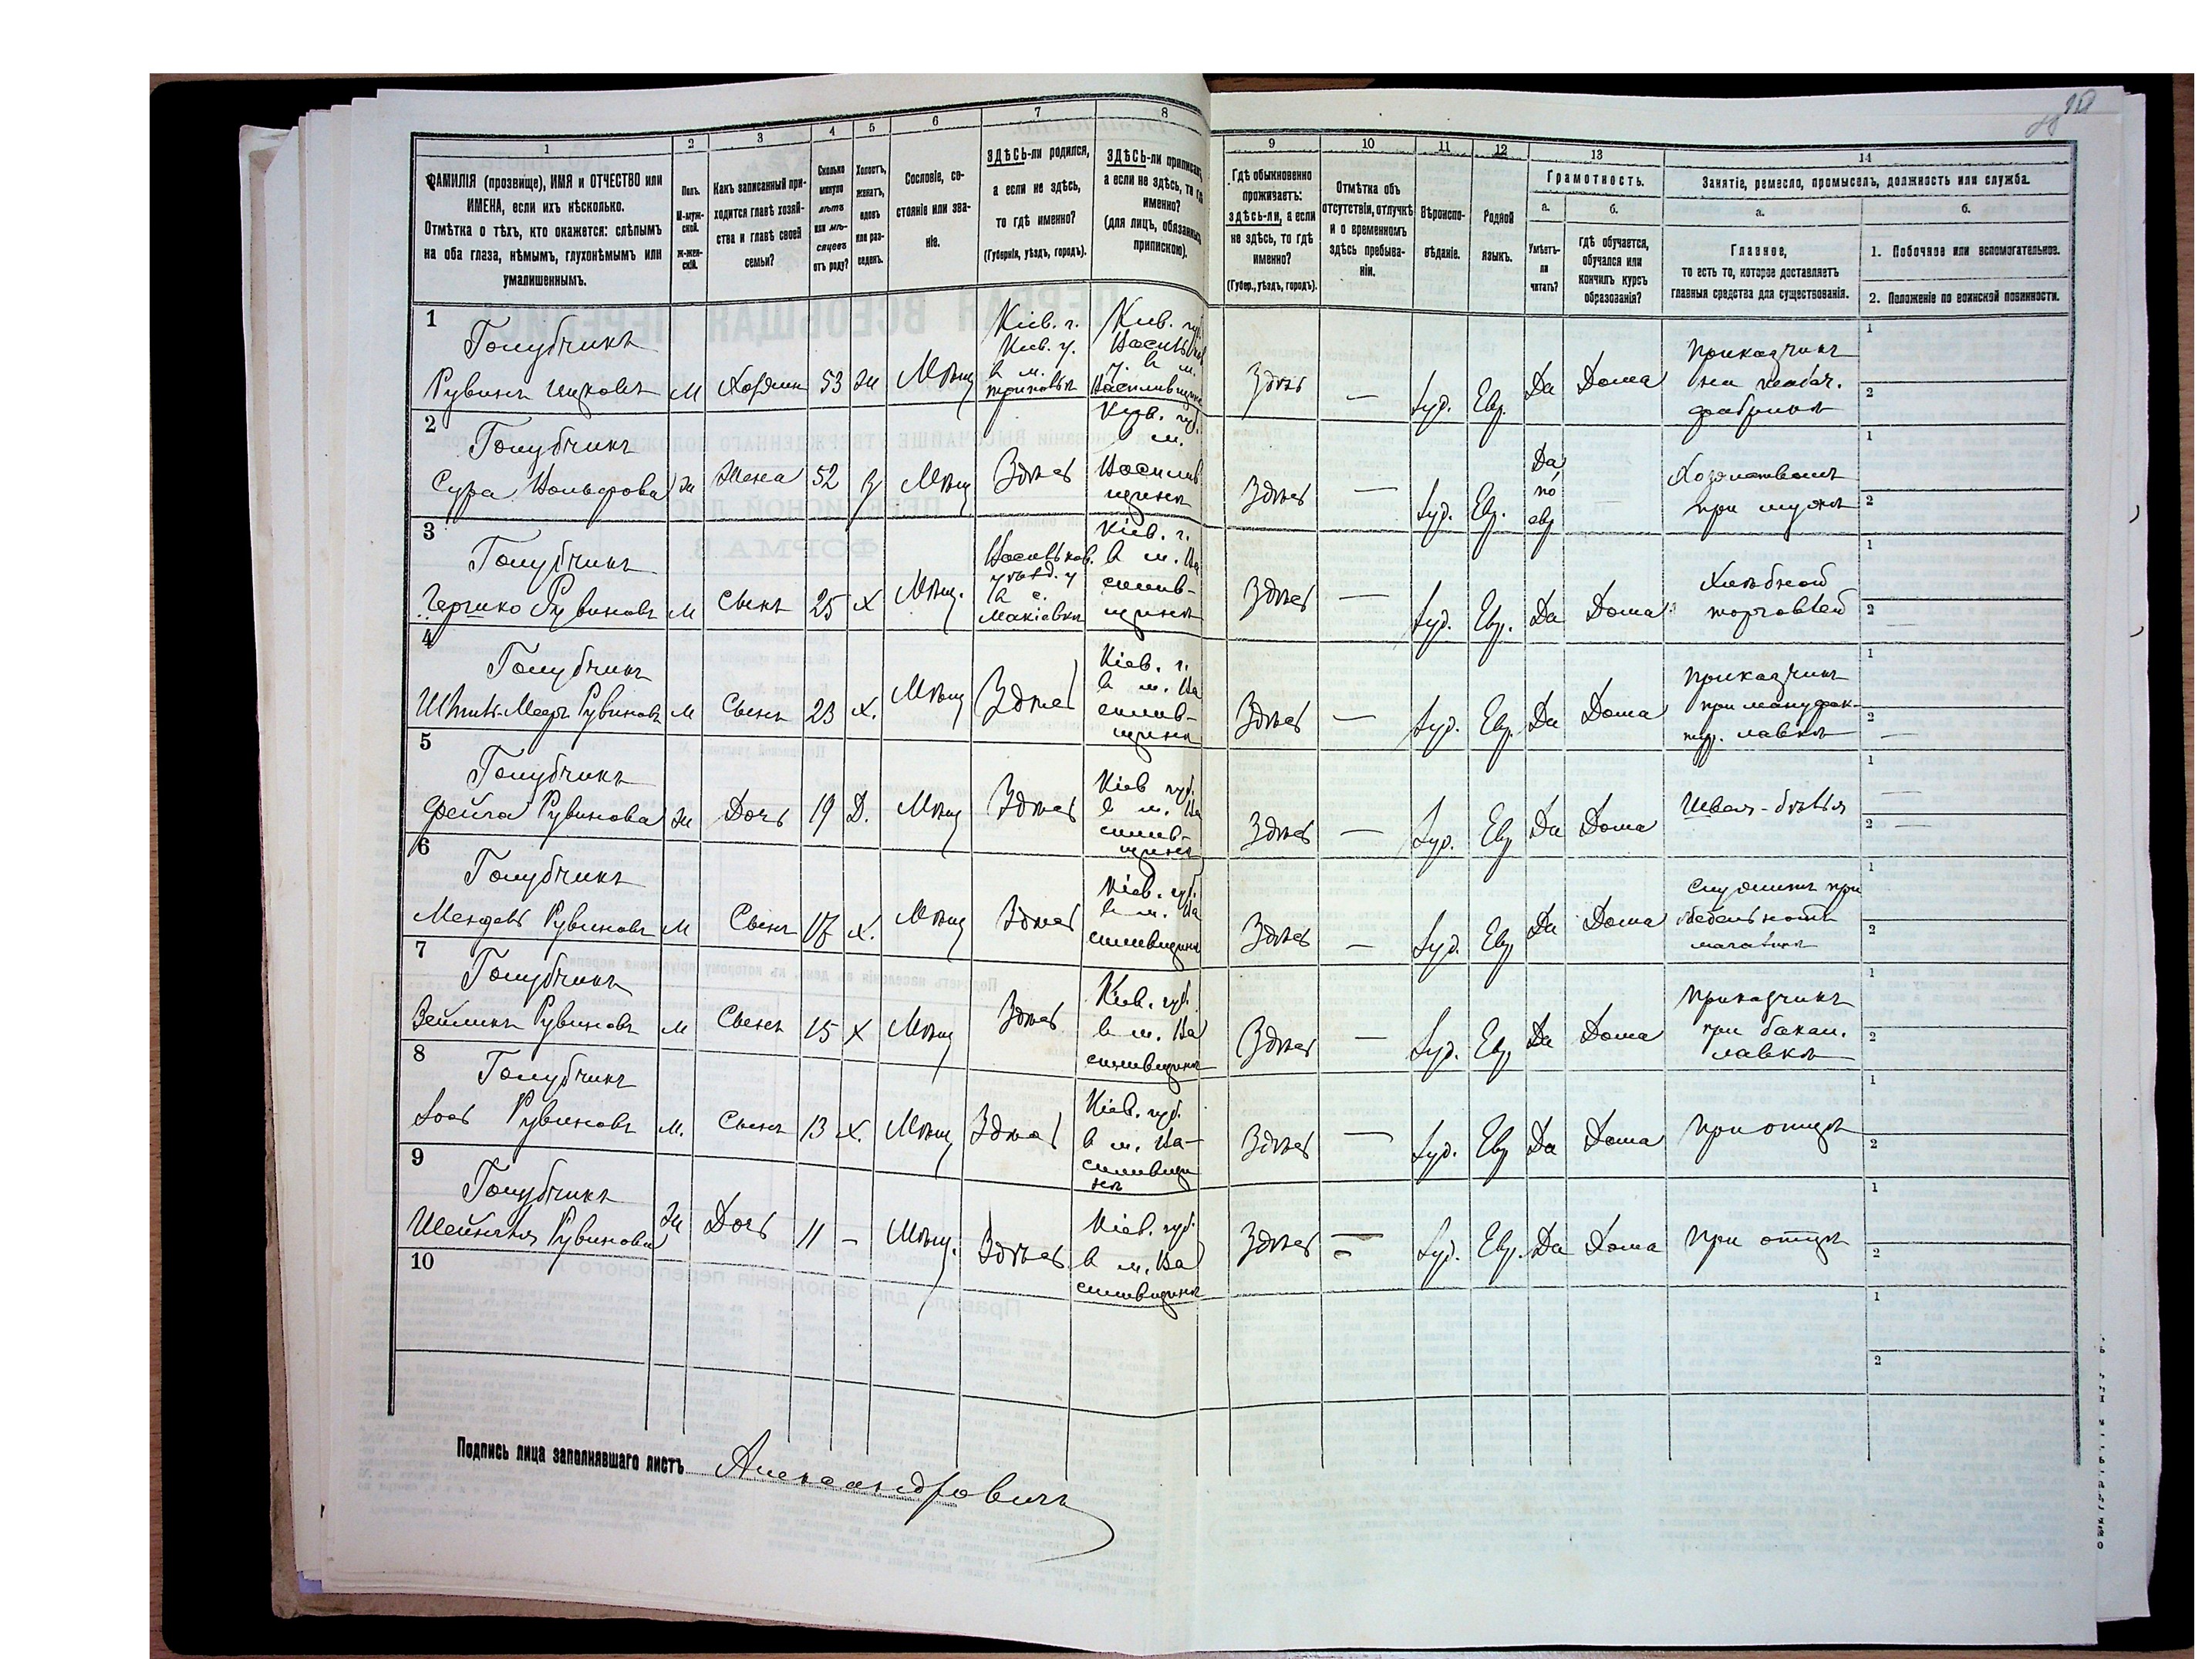 1 2 3 4 5 6 7 8 9 10 11 12 13 14
ФАМИЛІЯ (прозвище), ИМЯ и ОТЧЕСТВО или
ИМЕНА, если ихъ нѣсколько.
Отмѣтка о тѣхъ, кто окажется: слѣпымъ
на оба глаза, нѣмымъ, глухонѣмымъ или
умалишеннымъ.
Полъ.
М-муж-
ской.
Ж-жен-
скій.
Какъ записанный при-
ходится главѣ хозяй-
ства и главѣ своей
семьи?
Сколько
минуло
лѣтъ
или мѣ-
сяцевъ
отъ роду?
Холостъ,
женатъ,
вдовъ
или раз-
веденъ.
Сословіе, со-
стояніе или зва-
ніе.
ЗДѢСЬ-ли родился,
а если не здѣсь,
то гдѣ именно?
(Губернія, уѣздъ, городъ).
ЗДѢСЬ-ли приписанъ,
а если не здѣсь, то гдѣ
именно?
(для лицъ, обязанныхъ
припискою).
Гдѣ обыкновенно
проживаетъ:
здѣсь-ли, а если
не здѣсь, то гдѣ
именно?
(Губер., уѣздъ, городъ).
Отмѣтка объ
отсутствіи, отлучкѣ
и о временномъ
здѣсь пребыва-
ніи.
Вѣроиспо-
вѣданіе.
Родной
языкъ.
Грамотность.
а.
Умѣетъ-
ли
читать?
б.
гдѣ обучается,
обучался или
кончилъ курсъ
образованія?
Занятіе, ремесло, промыселъ, должность или служба.
а.
Главное,
то есть то, которое доставляетъ
главныя средства для существованія.
б.
1. Побочное или вспомогательное.
2. Положеніе по воинской повинности.
1
Голубчикъ
Рувинъ Ицковъ М Хозяин 53 Ж Мѣщ
Кіев. г.
Кіев. у.
в м.
Кіев. губ.
Васильк
у. в м.
Василивщинѣ
Здѣсь — Іуд. Евр. Да Дома
Приказчикъ
на табач.
фабрикѣ
2
Голубчикъ
Сура Вольфова Ж Жена 52 З Мѣщ Здѣсь
Кіев. губ.
м.
Василив
щинѣ
Здѣсь — Іуд. Евр.
Да,
по
евр
—
Хозяйствомъ
при мужѣ
3
Голубчикъ
Гершко Рувиновъ М Сынъ 25 Х Мѣщ.
Васильков.
уѣзд. у
в с.
Макіевкѣ
Кіев. г.
в м. Ва
силив-
щинѣ
Здѣсь — Іуд. Евр. Да Дома
Хлѣбной
торговлей
4
Голубчикъ
Меер Рувиновъ М Сынъ 23 Х. Мѣщ Здѣсь
Кіев. г.
в м. Ва
силив-
щинѣ
Здѣсь — Іуд. Евр. Да Дома
Приказчикъ
при мануфак-
тур. лавкѣ
5
Голубчикъ
Фейга Рувинова Ж Дочь 19 Д. Мѣщ Здѣсь
Кіев губ.
в м. Ва
силив-
щинѣ
Здѣсь — Іуд. Евр Да Дома
Швея - бѣлья
6
Голубчикъ
Мендель Рувиновъ М Сынъ 17 Х. Мѣщ Здѣсь
Кіев. губ.
в м. Ва
силивщинѣ
Здѣсь — Іуд. Евр Да Дома
Служитъ при
магазинѣ
7
Голубчикъ
Зейликъ Рувиновъ М Сынъ 15 Х Мѣщ Здѣсь
Кіев. губ.
в м. Ва
силивщинѣ
Здѣсь — Іуд. Евр Да Дома
Приказчикъ
при бакал.
лавкѣ
8
Голубчикъ
Іось Рувиновъ М. Сынъ 13 Х. Мѣщ Здѣсь
Кіев. губ.
в м. Ва-
силивщи
нѣ
Здѣсь — Іуд. Евр Да Дома
При отцѣ
9
Голубчикъ
Шейндля Рувинова Ж Дочь 11 — Мѣщ. Здѣсь
Кіев. губ.
в м. Ва
силивщинѣ
Здѣсь — Іуд. Евр. Да Дома
При отцѣ
10
Подпись лица заполнявшаго листъ Александровичъ